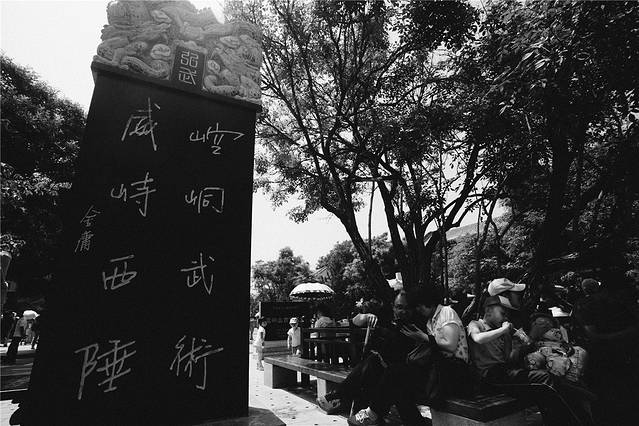 武
崆峒武術
威峙西陲
金庸